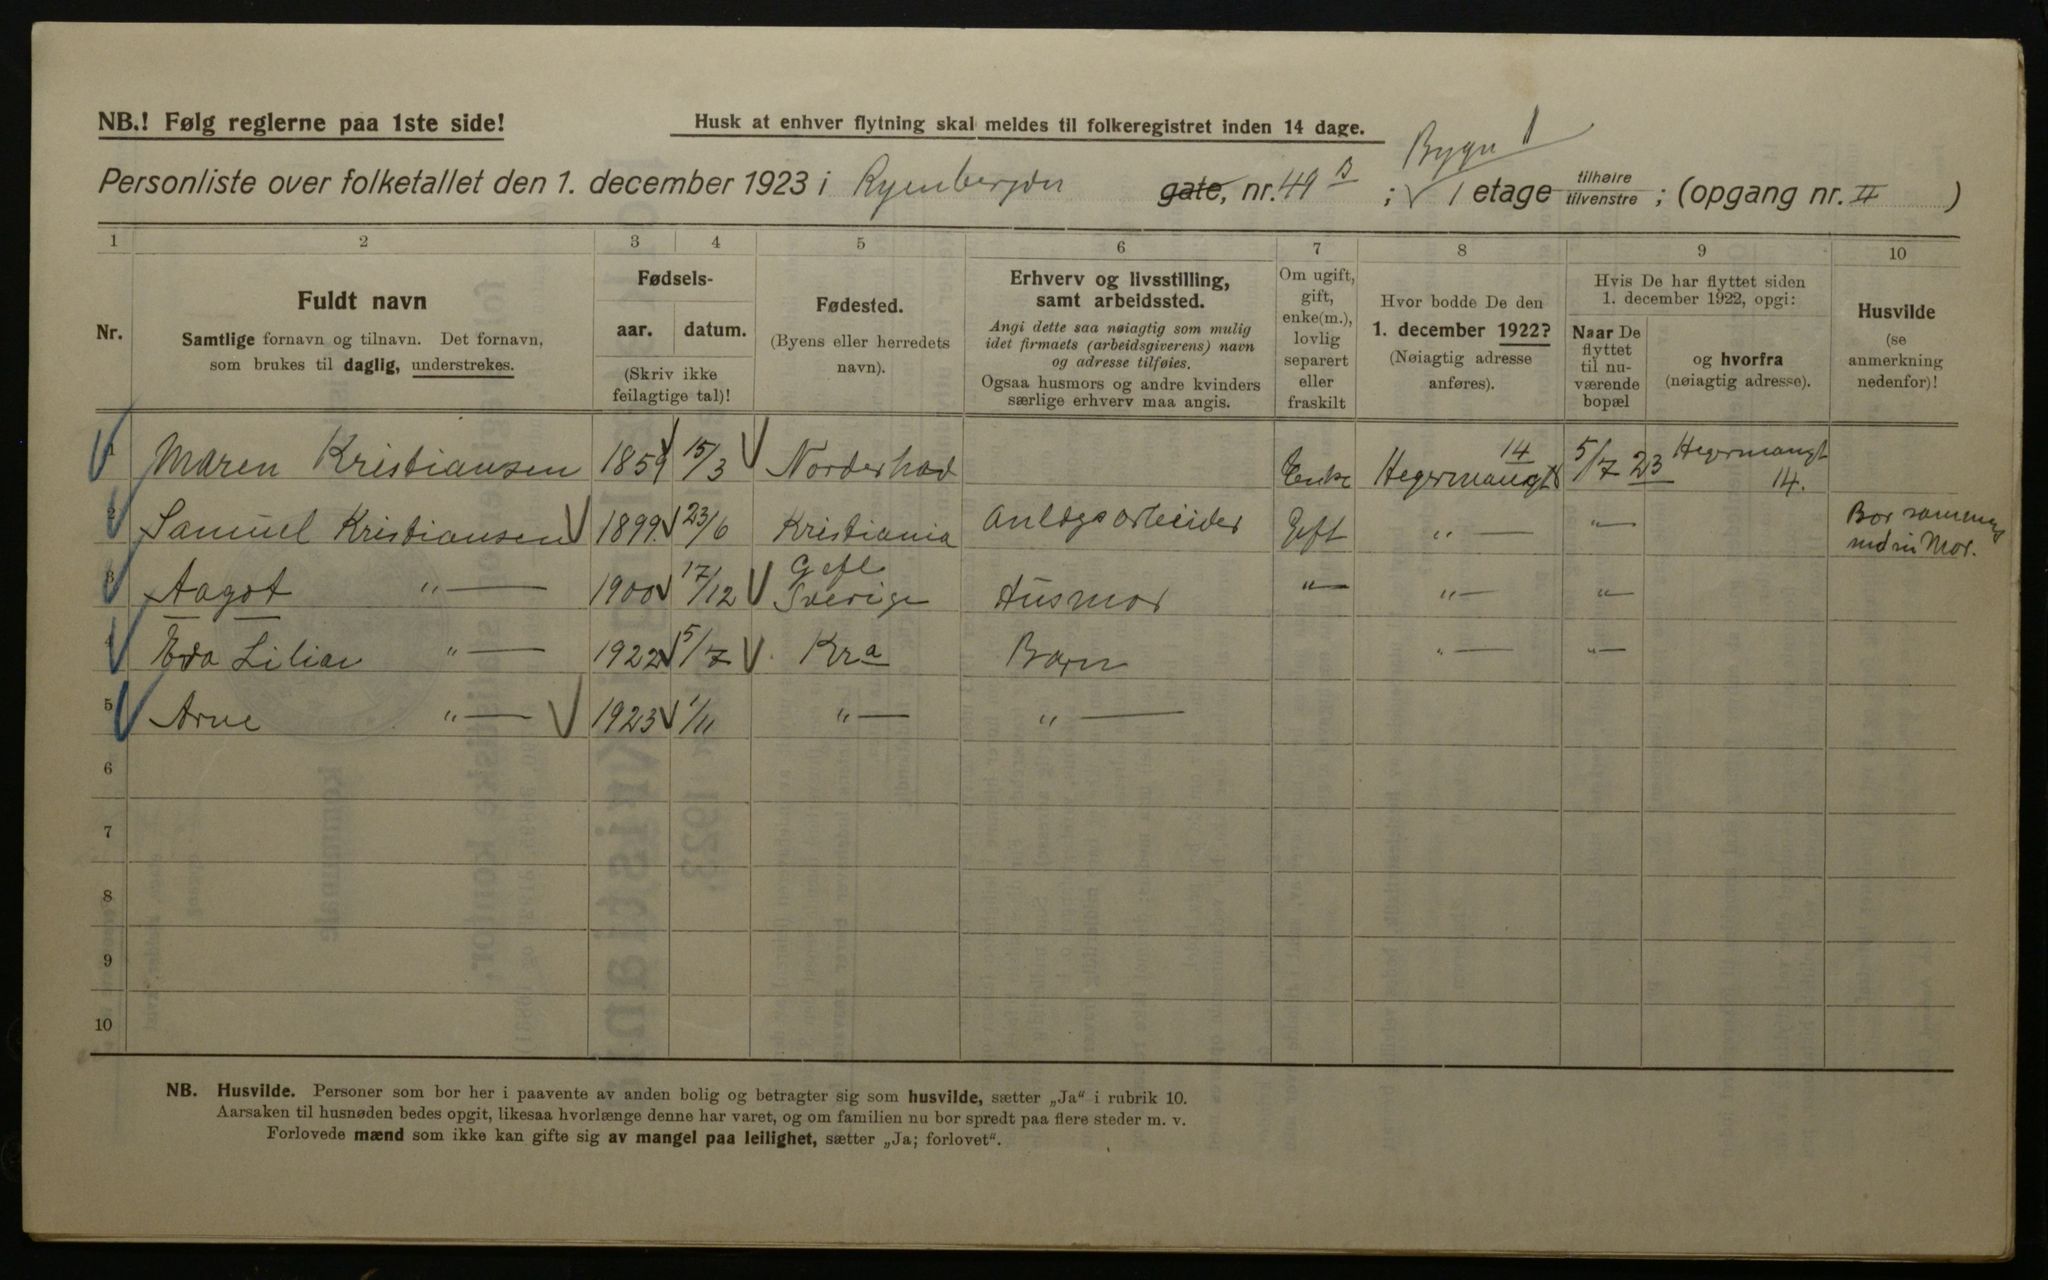 NB.! Følg reglerne paa 1ste side!
Husk at enhver flytning skal meldes til folkeregistret inden 14 dage.
Bygn 1
Personliste over folketallet den 1. december 1923 i Ryenbergvn gate, nr. 49 B ; 1 etage tilhøire tilvenstre ; (opgang nr. II )
1 2 3 4 5 6 7 8 9 10
Nr.
Fuldt navn
Samtlige fornavn og tilnavn. Det fornavn,
som brukes til daglig, understrekes.
Fødsels-
aar. datum.
(Skriv ikke
feilagtige tal)!
Fødested.
(Byens eller herredets
navn).
Erhverv og livsstilling,
samt arbeidssted.
Angi dette saa nøiagtig som mulig
idet firmaets (arbeidsgiverens) navn
og adresse tilføies.
Ogsaa husmors og andre kvinders
særlige erhverv maa angis.
Om ugift,
gift,
enke(m.),
lovlig
separert
eller
fraskilt
Hvor bodde De den
1. december 1922?
(Nøiagtig adresse
anføres).
Hvis De har flyttet siden
1. december 1922, opgi:
Naar De
flyttet
til nu-
værende
bopæl
og hvorfra
(nøiagtig adresse).
Husvilde
(se
anmerkning
nedenfor)!
1 Maren Kristiansen 1859 15/3 Norderhod Enke Hegermangt 14 5/7 23 Hegermangt 14.
2 Samuel Kristiansen 1899 23/6 Kristiania Anlægsarbeider Gift " — " — Bor sammen med sin Mor.
3 Aagot " — 1900 17/12 Gefle Sverige Husmor " — " — " —
4 Eva Lilian " — 1922 5/7 Kra Barn " — " —
5 Arne " — 1923 1/11 " — " —
6
7
8
9
10
NB. Husvilde. Personer som bor her i paavente av anden bolig og betragter sig som husvilde, sætter „Ja" i rubrik 10.
Aarsaken til husnøden bedes opgit, likesaa hvorlænge denne har varet, og om familien nu bor spredt paa flere steder m. v.
Forlovede mænd som ikke kan gifte sig av mangel paa leilighet, sætter „Ja; forlovet".